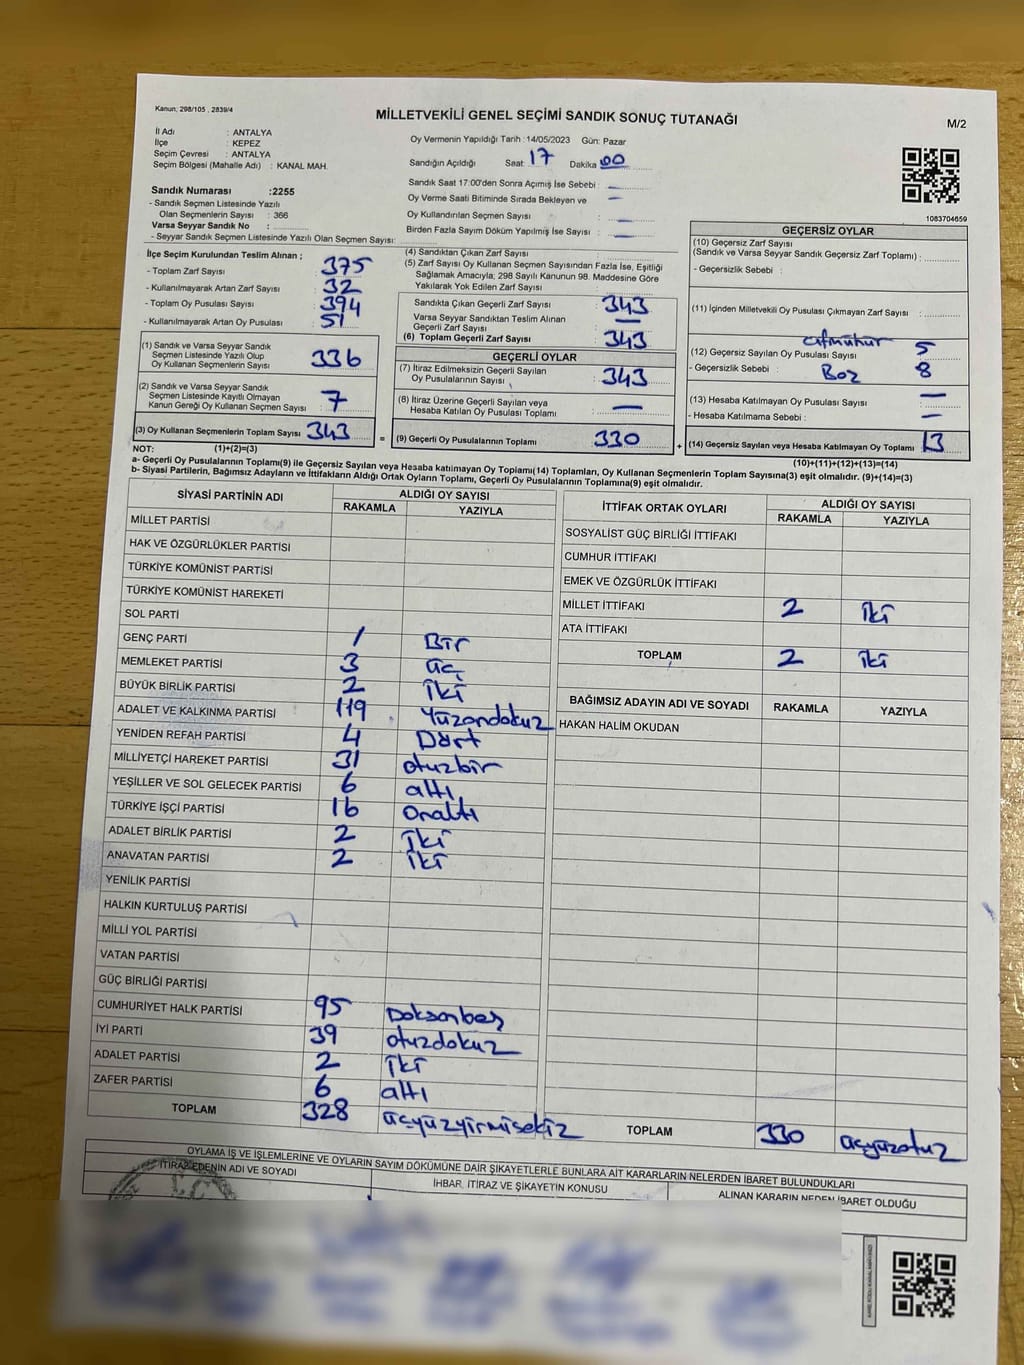 Kanun: 298/105 , 2839/4
MİLLETVEKİLİ GENEL SEÇİMİ SANDIK SONUÇ TUTANAĞI
M/2
İl Adı : ANTALYA
İlçe : KEPEZ
Seçim Çevresi : ANTALYA
Seçim Bölgesi (Mahalle Adı) : KANAL MAH.
Oy Vermenin Yapıldığı Tarih :14/05/2023 Gün: Pazar
Sandığın Açıldığı Saat 17 Dakika 00
Sandık Saat 17:00'den Sonra Açımış İse Sebebi : —
Oy Verme Saati Bitiminde Sırada Bekleyen ve
Oy Kullandırılan Seçmen Sayısı : —
Birden Fazla Sayım Döküm Yapılmış İse Sayısı : —
1083704659
Sandık Numarası :2255
- Sandık Seçmen Listesinde Yazılı
Olan Seçmenlerin Sayısı : 366
Varsa Seyyar Sandık No :
- Seyyar Sandık Seçmen Listesinde Yazılı Olan Seçmen Sayısı:
İlçe Seçim Kurulundan Teslim Alınan ;
- Toplam Zarf Sayısı : 375
- Kullanılmayarak Artan Zarf Sayısı : 32
- Toplam Oy Pusulası Sayısı : 394
- Kullanılmayarak Artan Oy Pusulası : 51
(1) Sandık ve Varsa Seyyar Sandık
Seçmen Listesinde Yazılı Olup
Oy Kullanan Seçmenlerin Sayısı : 336
(2) Sandık ve Varsa Seyyar Sandık
Seçmen Listesinde Kayıtlı Olmayan
Kanun Gereği Oy Kullanan Seçmen Sayısı : 7
(3) Oy Kullanan Seçmenlerin Toplam Sayısı 343
(4) Sandıktan Çıkan Zarf Sayısı
(5) Zarf Sayısı Oy Kullanan Seçmen Sayısından Fazla İse, Eşitliği
Sağlamak Amacıyla; 298 Sayılı Kanunun 98. Maddesine Göre
Yakılarak Yok Edilen Zarf Sayısı :
Sandıkta Çıkan Geçerli Zarf Sayısı : 343
Varsa Seyyar Sandıktan Teslim Alınan
Geçerli Zarf Sayısı : —
(6) Toplam Geçerli Zarf Sayısı : 343
GEÇERLİ OYLAR
(7) İtiraz Edilmeksizin Geçerli Sayılan
Oy Pusulalarının Sayısı : 343
(8) İtiraz Üzerine Geçerli Sayılan veya
Hesaba Katılan Oy Pusulası Toplamı : —
= (9) Geçerli Oy Pusulalarının Toplamı 330 +
GEÇERSİZ OYLAR
(10) Geçersiz Zarf Sayısı
(Sandık ve Varsa Seyyar Sandık Geçersiz Zarf Toplamı) :
- Geçersizlik Sebebi :
(11) İçinden Milletvekili Oy Pusulası Çıkmayan Zarf Sayısı :
(12) Geçersiz Sayılan Oy Pusulası Sayısı 5
- Geçersizlik Sebebi : Boz 8
(13) Hesaba Katılmayan Oy Pusulası Sayısı : —
- Hesaba Katılmama Sebebi : —
(14) Geçersiz Sayılan veya Hesaba Katılmayan Oy Toplamı 13
NOT: (1)+(2)=(3)
(10)+(11)+(12)+(13)=(14)
a- Geçerli Oy Pusulalarının Toplamı(9) ile Geçersiz Sayılan veya Hesaba katılmayan Oy Toplamı(14) Toplamları, Oy Kullanan Seçmenlerin Toplam Sayısına(3) eşit olmalıdır. (9)+(14)=(3)
b- Siyasi Partilerin, Bağımsız Adayların ve İttifakların Aldığı Ortak Oyların Toplamı, Geçerli Oy Pusulalarının Toplamına(9) eşit olmalıdır.
SİYASİ PARTİNİN ADI ALDIĞI OY SAYISI
RAKAMLA YAZIYLA
MİLLET PARTİSİ
HAK VE ÖZGÜRLÜKLER PARTİSİ
TÜRKİYE KOMÜNİST PARTİSİ
TÜRKİYE KOMÜNİST HAREKETİ
SOL PARTİ
GENÇ PARTİ 1 Bir
MEMLEKET PARTİSİ 3 üç
BÜYÜK BİRLİK PARTİSİ 2 iki
ADALET VE KALKINMA PARTİSİ 119 Yüzondokuz
YENİDEN REFAH PARTİSİ 4 Dört
MİLLİYETÇİ HAREKET PARTİSİ 31 otuzbir
YEŞİLLER VE SOL GELECEK PARTİSİ 6 altı
TÜRKİYE İŞÇİ PARTİSİ 16 Onaltı
ADALET BİRLİK PARTİSİ 2 iki
ANAVATAN PARTİSİ 2 iki
YENİLİK PARTİSİ
HALKIN KURTULUŞ PARTİSİ
MİLLİ YOL PARTİSİ
VATAN PARTİSİ
GÜÇ BİRLİĞİ PARTİSİ
CUMHURİYET HALK PARTİSİ 95 Doksanbeş
İYİ PARTİ 39 otuzdokuz
ADALET PARTİSİ 2 iki
ZAFER PARTİSİ 6 altı
TOPLAM 328 üçyüzyirmisekiz
İTTİFAK ORTAK OYLARI ALDIĞI OY SAYISI
RAKAMLA YAZIYLA
SOSYALİST GÜÇ BİRLİĞİ İTTİFAKI
CUMHUR İTTİFAKI
EMEK VE ÖZGÜRLÜK İTTİFAKI
MİLLET İTTİFAKI 2 iki
ATA İTTİFAKI
TOPLAM 2 iki
BAĞIMSIZ ADAYIN ADI VE SOYADI RAKAMLA YAZIYLA
HAKAN HALİM OKUDAN
TOPLAM 330 üçyüzotuz
OYLAMA İŞ VE İŞLEMLERİNE VE OYLARIN SAYIM DÖKÜMÜNE DAİR ŞİKAYETLERLE BUNLARA AİT KARARLARIN NELERDEN İBARET BULUNDUKLARI
İTİRAZ EDENİN ADI VE SOYADI İHBAR, İTİRAZ VE ŞİKAYETİN KONUSU ALINAN KARARIN NEDEN İBARET OLDUĞU